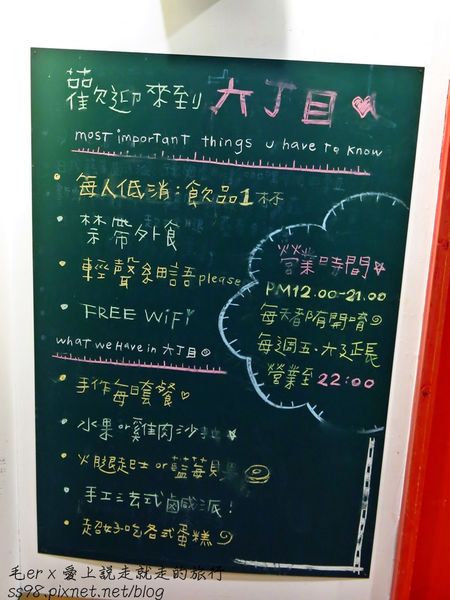 歡迎來到 六丁目
most important things u have to know
每人低消:飲品1杯
禁帶外食
輕聲細語please
FREE WiFi
營業時間
PM12.00-21.00
每天都有開唷
每週五、六延長
營業至22:00
what we Have in 六丁目
手作每日套餐
水果or雞肉沙拉
火腿起士or藍莓貝果
手工法式鹹派!
超好吃各式蛋糕
毛er x 愛上說走就走的旅行
ss98.pixnet.net/blog